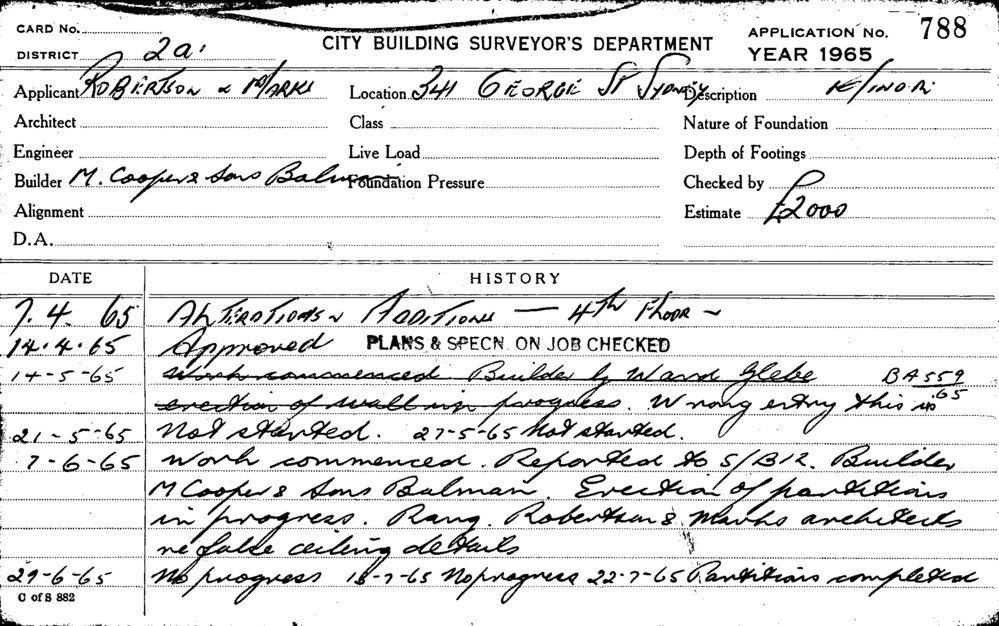 CARD No.
DISTRICT 2a.
CITY BUILDING SURVEYOR'S DEPARTMENT
APPLICATION No. 788
YEAR 1965
Applicant ROBERTSON & MARKS Location 341 GEORGE ST SYDNEY Description
Architect Class Nature of Foundation
Engineer Live Load Depth of Footings
Builder M. Cooper & Sons Balmain Foundation Pressure Checked by
Alignment Estimate £2000
D.A.
DATE HISTORY
7.4.65 ALTERATIONS & ADDITIONS — 4TH FLOOR ~
14.4.65 Approved PLANS & SPECN. ON JOB CHECKED
14-5-65 Work commenced Builder G Ward Glebe BA 559
erection of wall in progress. Wrong entry this is 65
21-5-65 Not started. 27-5-65 Not started.
7-6-65 Work commenced. Reported to S/B12. Builder
M Cooper & Sons Balmain. Erection of partitions
in progress. Rang. Robertson & Marks architects
re false ceiling details
29-6-65 No progress 13-7-65 No progress 22-7-65 Partitions completed
C of S 882